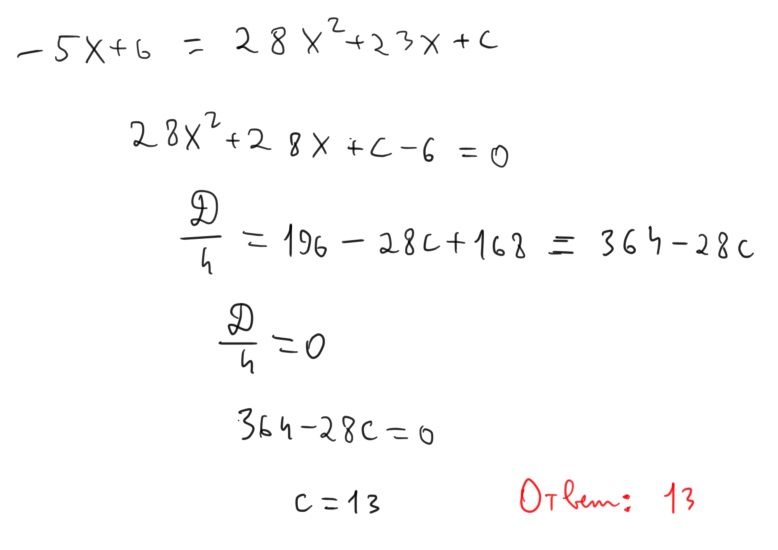 -5x+6 = 28x²+23x+c
28x²+28x+c-6=0
D/4 = 196-28c+168 = 364-28c
D/4 = 0
364-28c=0
c=13 Ответ: 13